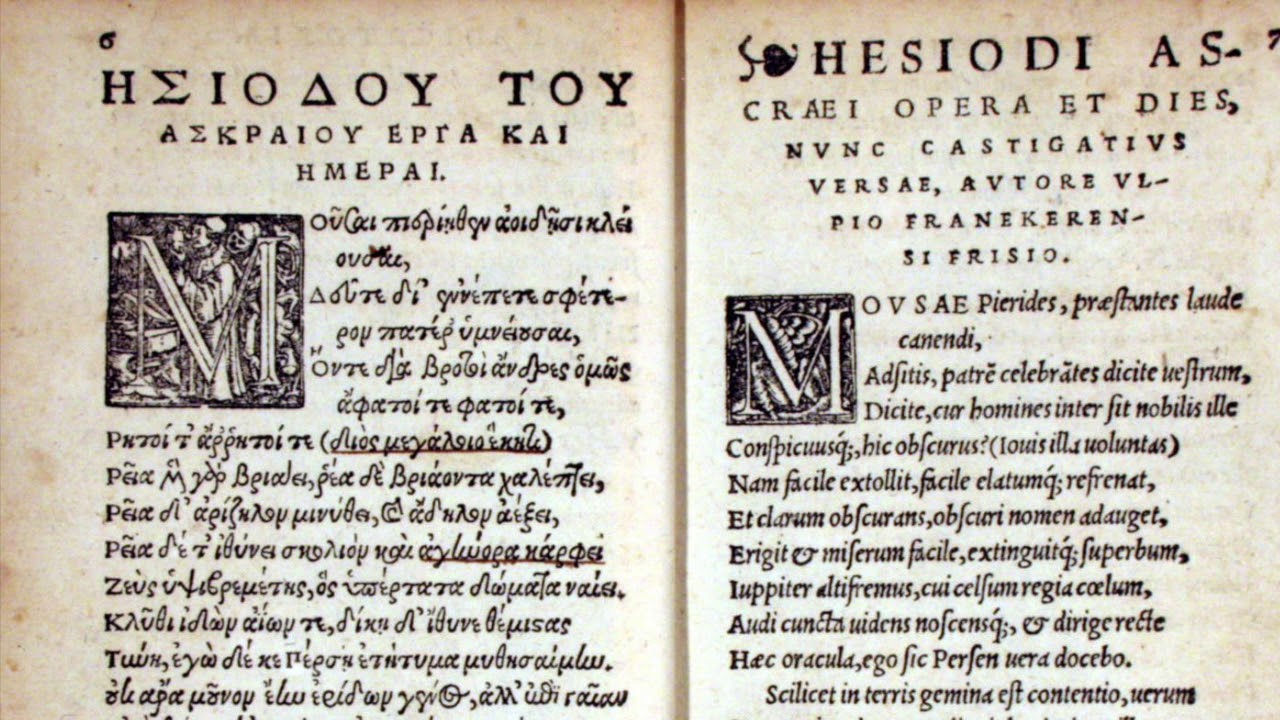 6
ΗΣΙΟΔΟΥ ΤΟΥ
ΑΣΚΡΑΙΟΥ ΕΡΓΑ ΚΑΙ
ΗΜΕΡΑΙ.
ΜΟῦσαι πιερίηθεν ἀοιδῇσι κλεί
ουσαι,
Δεῦτε δὶ' ἐννέπετε σφέτε-
ρον πατέρ' ὑμνείουσαι,
Ὅντε διὰ βροτοὶ ἄνδρες ὁμῶς
ἄφατοί τε φατοί τε,
Ρητοί τ' ἄρρητοί τε (διὸς μεγάλοιο ἕκητι)
Ρεῖα μὲν γὰρ βριάει, ῥέα δὲ βριάοντα χαλέπτει,
Ρεῖα δ' ἀρίζηλον μινύθει, καὶ ἄδηλον ἀέξει,
Ρεῖα δέ τ' ἰθύνει σκολιὸν καὶ ἀγήνορα κάρφει
Ζεὺς ὑψιβρεμέτης, ὃς ὑπέρτατα δώματα ναίει.
Κλῦθι ἰδὼν ἀΐων τε, δίκῃ δ' ἴθυνε θέμιστας
Τύνη, ἐγὼ δέ κε Πέρσῃ ἐτήτυμα μυθησαίμην.
οὐκ ἄρα μοῦνον ἔην ἐρίδων γένος, ἀλλ' ἐπὶ γαῖαν
7
HESIODI AS-
CRAEI OPERA ET DIES,
NVNC CASTIGATIVS
VERSAE, AVTORE VL-
PIO FRANEKEREN-
SI FRISIO.
MOVSAE Pierides, præstantes laude
canendi,
Adsitis, patrē celebrātes dicite uestrum,
Dicite, cur homines inter sit nobilis ille
Conspicuusq;, hic obscurus? (Iouis illa uoluntas)
Nam facile extollit, facile elatumq; refrenat,
Et clarum obscurans, obscuri nomen adauget,
Erigit & miserum facile, extinguitq; superbum,
Iuppiter altifremus, cui celsum regia cœlum,
Audi cuncta uidens noscensq;, & dirige recte
Hæc oracula, ego sic Persen uera docebo.
Scilicet in terris gemina est contentio, uerum